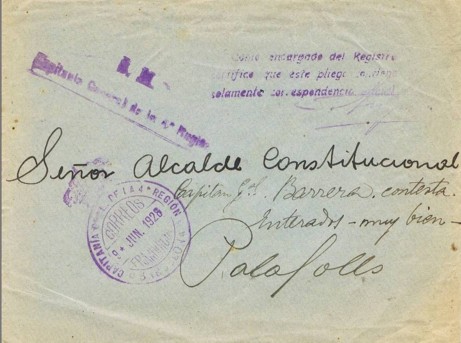 S. M.
Capitanía General de la 4ª Región
Como encargado del Registro
certifico que este pliego contiene
solamente correspondencia oficial
Señor Alcalde Constitucional
Capitan Gral. Barrera. contesta.
Enterados - muy bien -
CAPITANÍA GRAL. DE LA 4ª REGIÓN
CORREOS
JUN. 1928
FRANQUICIA
Palafolls